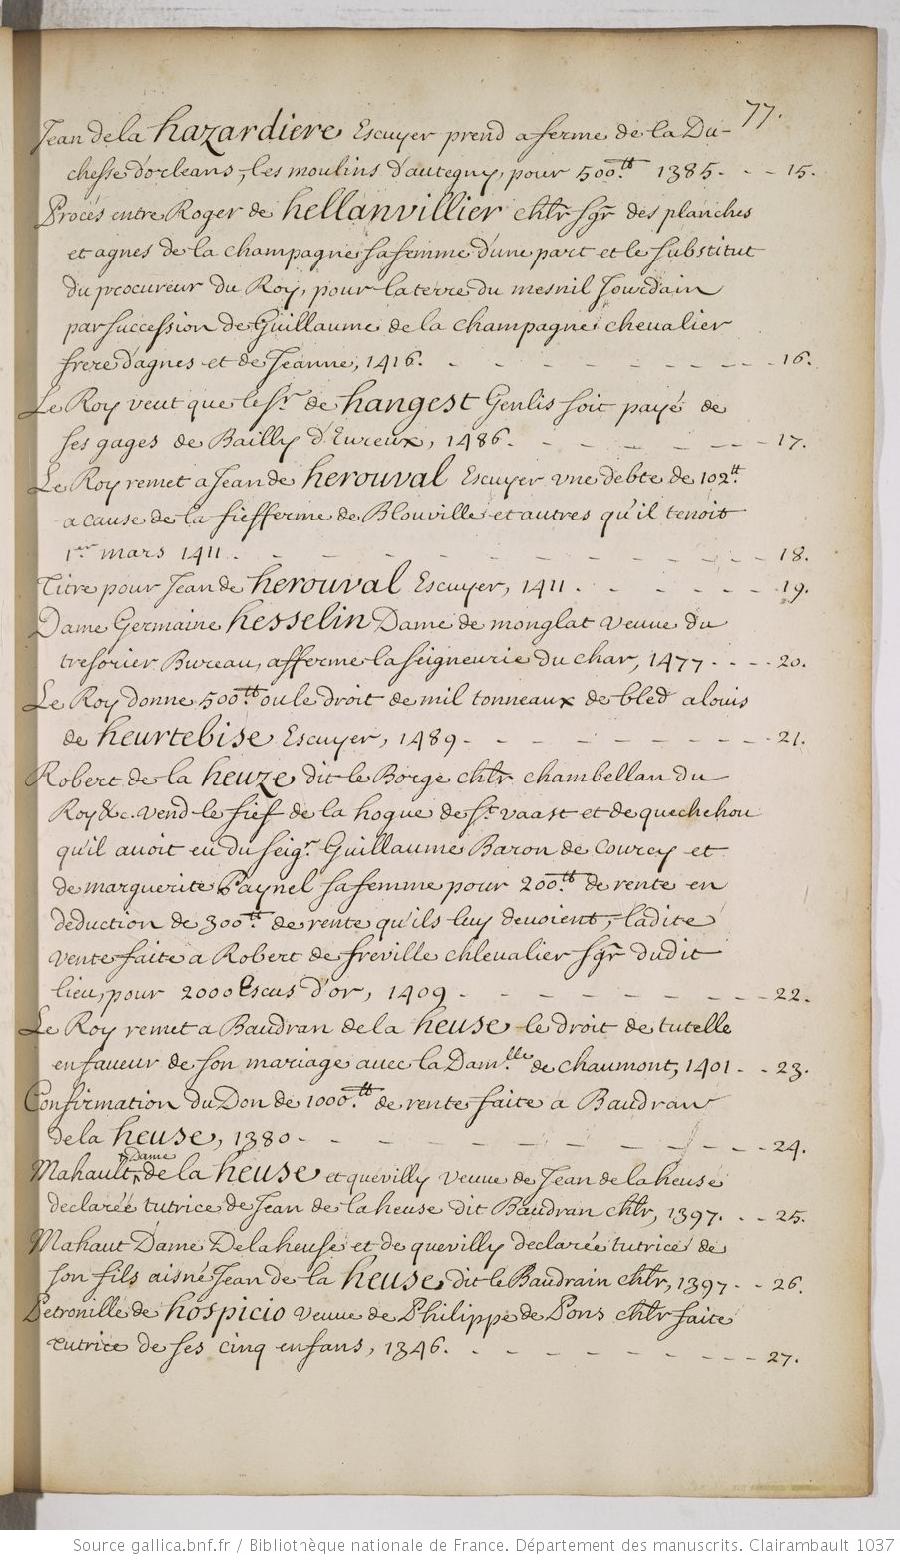 77.
Jean de la hazardiere Escuyer prend a ferme de la Du-
chesse d'orleans, les moulins d'autegny, pour 500.tt 1385. - - 15.
Procés entre Roger de hellanvillier chlr sgr des planches
et agnes de la champagne sa femme d'une part et le substitut
du procureur du Roy, pour la terre du mesnil Jourdain
par succession de Guillaume de la champagne chevalier
frere d'agnes et de Jeanne, 1416. - - - - - - - - - 16.
Le Roy veut que le sr. de hangest Genlis soit payé de
ses gages de Bailly d'Eureux, 1486. - - - - - - - 17.
Le Roy remet a Jean de herouval Escuyer vne debte de 102tt
a cause de la fiefferme de Blouville et autres qu'il tenoit
1.er mars 1411. - - - - - - - - - - - - 18.
Titre pour Jean de herouval Escuyer, 1411. - - - - - - 19.
Dame Germaine hesselin Dame de monglat veuue du
tresorier Bureau, afferme la seigneurie du char, 1477. - - - 20.
Le Roy donne 500.tt ou le droit de mil tonneaux de bled a louis
de heurtebise Escuyer, 1489. - - - - - - - - - 21.
Robert de la heuze dit le Borge chlr chambellan du
Roy &c. vend le fief de la hogue de st. vaast et de quechehou
qu'il auoit eu du seigr. Guillaume Baron de Courcy et
de marguerite Paynel sa femme pour 200.tt de rente en
deduction de 300.tt de rente qu'ils luy deuoient, ladite
vente faite a Robert de freville chleualier sgr dudit
lieu, pour 2000 Escus d'or, 1409 - - - - - - - - - 22.
Le Roy remet a Baudran de la heuse le droit de tutelle
en faueur de son mariage auec la Dam.lle de chaumont, 1401 - - 23.
Confirmation du Don de 1000.tt de rente faite a Baudran
de la heuse, 1380 - - - - - - - - - - - 24.
Dame
Mahault de la heuse et quevilly veuue de Jean de la heuse
declarée tutrice de Jean de la heuse dit Baudran chlr, 1397. - - 25.
Mahaut Dame De la heuse et de quevilly declarée tutrice de
son fils aisné Jean de la heuse dit le Baudrain chlr, 1397 - - 26.
Petronille de hospicio veuue de Philippe de Pons chlr faite
tutrice de ses cinq enfans, 1346. - - - - - - - - - 27.
Source gallica.bnf.fr / Bibliothèque nationale de France. Département des manuscrits. Clairambault 1037